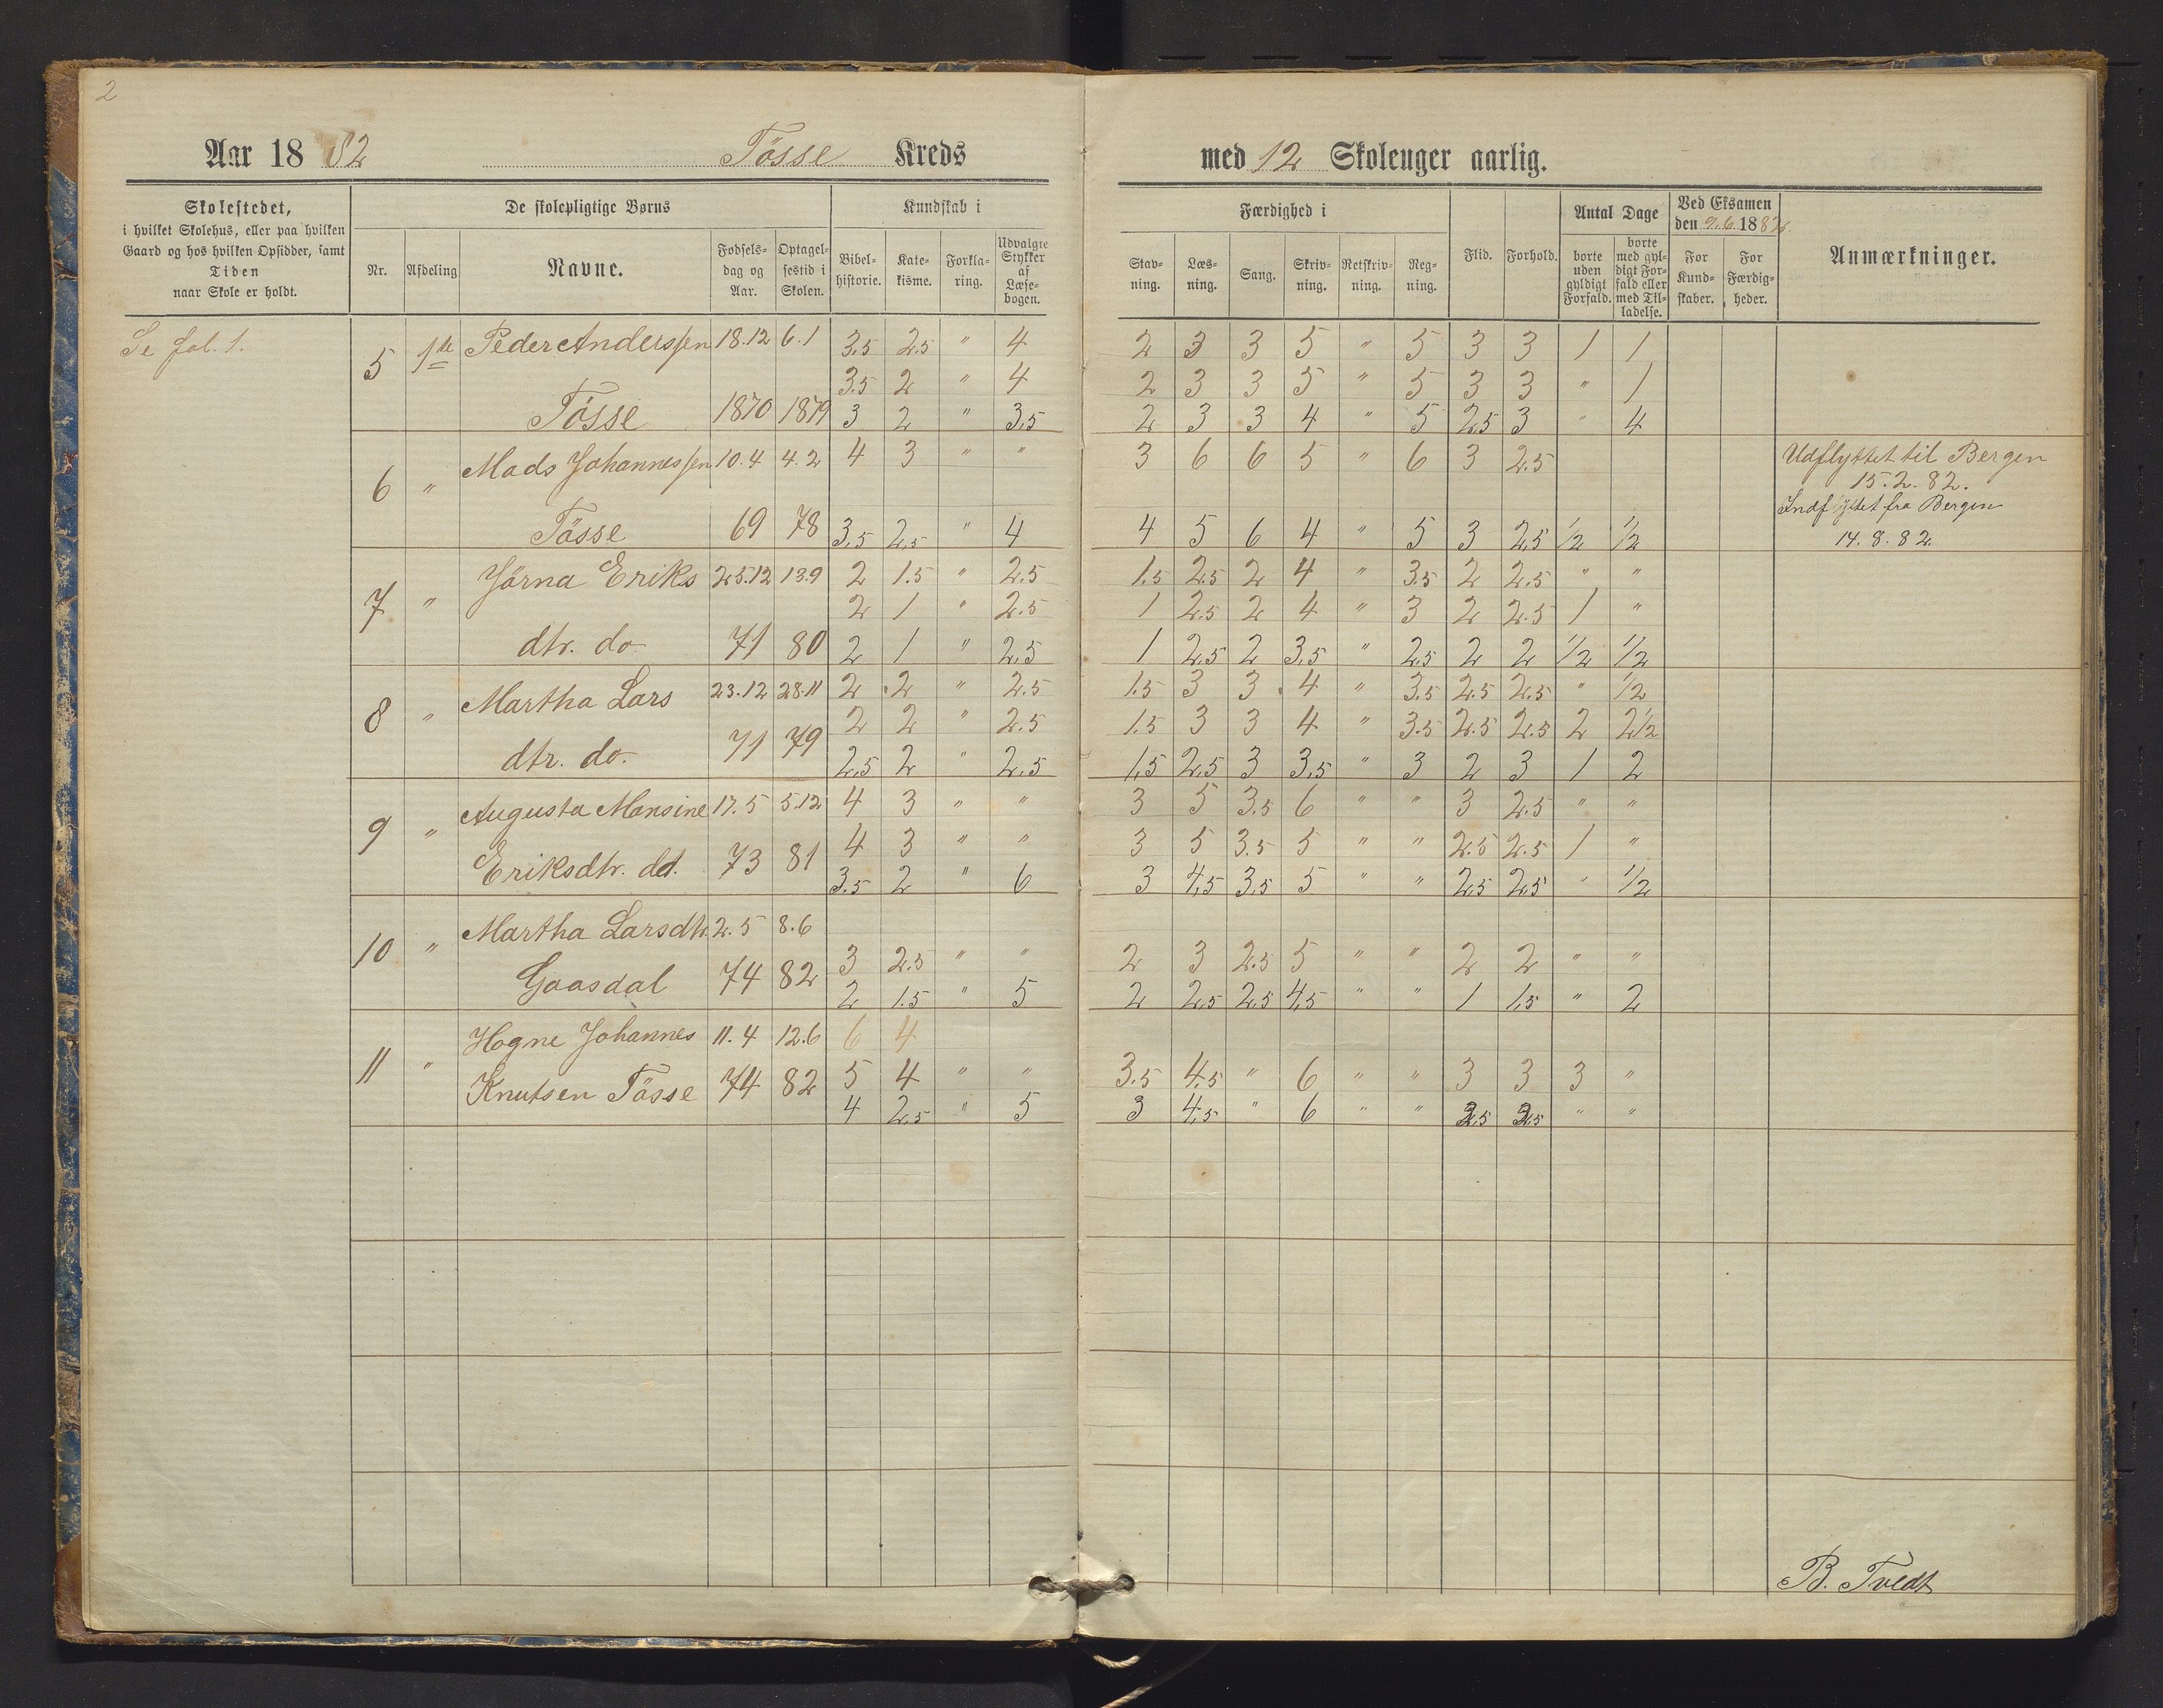 2
Aar 18 82 Tösse Kreds med 12 Skoleuger aarlig.
Skolestedet,
i hvilket Skolehus, eller paa hvilken
Gaard og hos hvilken Opsidder, samt
Tiden
naar Skole er holdt.
De skolepligtige Børns
Nr. Afdeling Navne. Fødsels-dag og Aar. Optagel-sestid i Skolen.
Kundskab i
Bibel-historie. Kate-kisme. Forkla-ring. Udvalgte Stykker af Læse-bogen.
Færdighed i
Stav-ning. Læs-ning. Sang. Skriv-ning. Retskriv-ning. Reg-ning.
Flid. Forhold.
Antal Dage
borte uden gyldigt Forfald. borte med gyl-digt For-fald eller med Til-ladelse.
Ved Eksamen
den 9.6.1882.
For Kund-skaber. For Færdig-heder.
Anmærkninger.
Se fol. 1.
5 1ste Peder Anderssen 18.12 6.1 3.5 2.5 " 4 2 3 3 5 " 5 3 3 1 1
3.5 2 " 4 2 3 3 5 " 5 3 3 " 1
Tösse 1870 1879 3 2 " 3,5 2 3 3 4 " 5 2,5 3 " 4
6 " Mads Johannessen 10.4 4.2 4 3 " " 3 6 6 5 " 6 3 2.5 Udflyttet til Bergen
15.2.82.
Indflyttet fra Bergen
Tösse 69 78 3,5 2,5 " 4 4 5 6 4 " 5 3 2,5 1/2 1/2 14.8.82.
7 " Jörna Eriks 25.12 13.9 2 1.5 " 2.5 1.5 2.5 2 4 " 3.5 2 2.5 " "
2 1 " 2.5 1 2.5 2 4 " 3 2 2.5 1 "
dtr. do. 71 80 2 1 " 2,5 1 2,5 2 3,5 " 2,5 2 2 1/2 1/2
8 " Martha Lars 23.12 28.11 2 2 " 2.5 1.5 3 3 4 " 3.5 2.5 2.5 " 1/2
2 2 " 2.5 1.5 3 3 4 " 3.5 2.5 2.5 2 2 1/2
dtr. do. 71 79 2,5 2 " 2,5 1,5 2,5 3 3,5 " 3 2 3 1 2
9 " Augusta Monsine 17.5 5.12 4 3 " " 3 5 3.5 6 " " 3 2.5 " "
4 3 " " 3 5 3.5 5 " " 2.5 2.5 1 "
Eriksdtr. do. 73 81 3,5 2 " 6 3 4,5 3,5 5 " " 2,5 2,5 " 1/2
10 " Martha Larsdtr. 2.5 8.6
3 2.5 " " 2 3 2.5 5 " " 2 2 " "
Gaasdal 74 82 2 1.5 " 5 2 2,5 2,5 4,5 " " 1 1,5 " 2
11 " Hogne Johannes 11.4 12.6 6 4
5 4 " " 3.5 4.5 " 6 " " 3 3 3 "
Knutsen Tösse 74 82 4 2,5 " 5 3 4,5 " 6 " " 2,5 2,5 " "
B. Tvedt